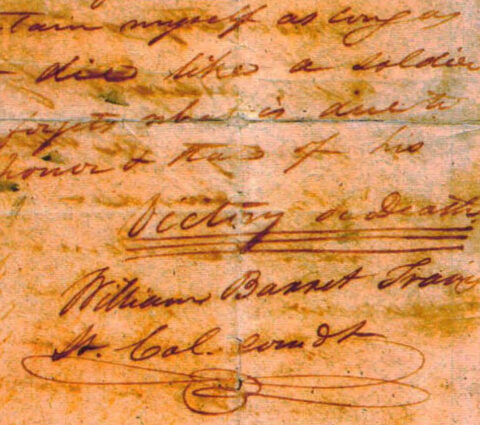 tain myself as long as
die like a soldier
forgets what is due to
honor & that of his
Victory or Death
William Barret Trav
Lt. Col. comdt